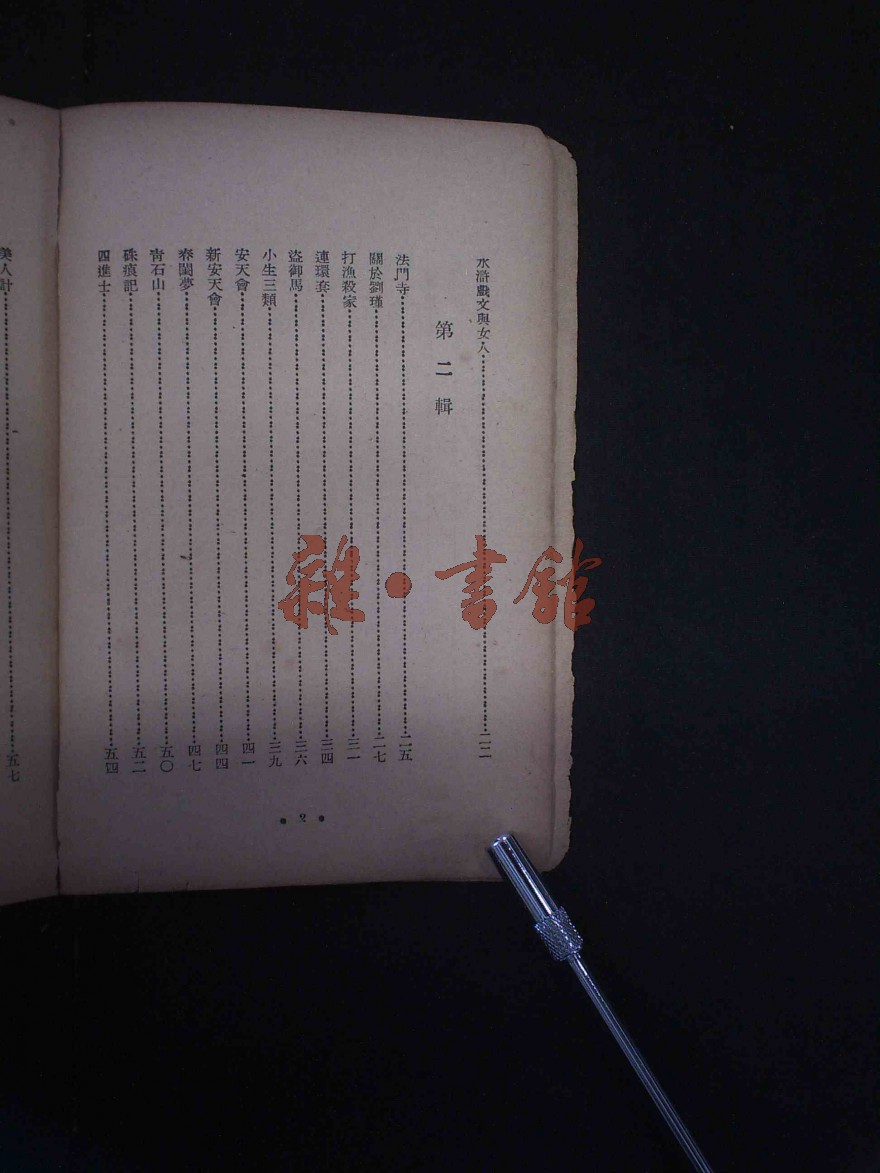 水滸戲文與女人⋯⋯二二
第二輯
法門寺⋯⋯二五
關於劉瑾⋯⋯二七
打漁殺家⋯⋯三一
連環套⋯⋯三四
盜御馬⋯⋯三六
小生三類⋯⋯三九
安天會⋯⋯四一
新安天會⋯⋯四四
春閨夢⋯⋯四七
青石山⋯⋯五〇
硃痕記⋯⋯五二
四進士⋯⋯五四
• 2 •
美人計⋯⋯五七
雜•書館